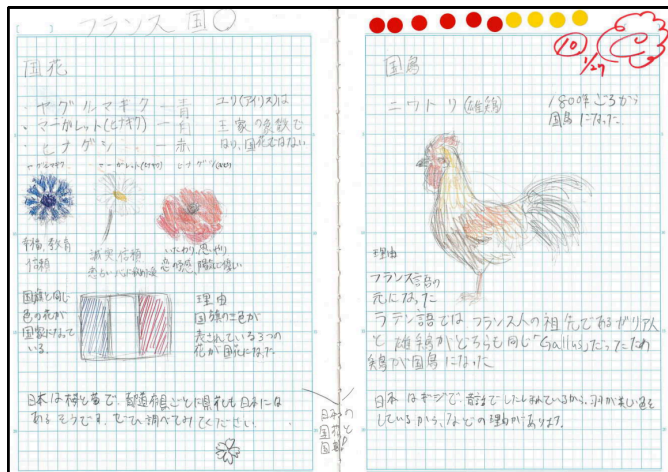 フランス 国〇
国花
・ヤグルマギク ー 青
・マーガレット(ヒナギク) ー 白
・ヒナゲシ ー 赤
ユリ(アイリス)は
王家の象徴で
あり、国花ではない
ヤグルマギク
マーガレット(ヒナギク)
ヒナゲシ
幸福、教育
信頼
誠実、信頼
いたわり、思いやり
国旗と同じ
色の花が
国家になって
いる。
理由
国旗の三色が
表されている3つの
花が国花になった
日本は桜と菊で、都道府県ごとに県花も
あるそうです。ぜひ調べてみてください。
日本の
国花と
国鳥
10
1/27
国鳥
ニワトリ(雄鶏)
1800年ごろから
国鳥になった
理由
フランス語の
元になった
ラテン語ではフランス人の祖先であるガリア人
と雄鶏がどちらも同じ「Gallus」だったため
鶏が国鳥になった
日本はキジで昔話でしたしまれているから、羽が美しい色を
しているから、などの理由があります。